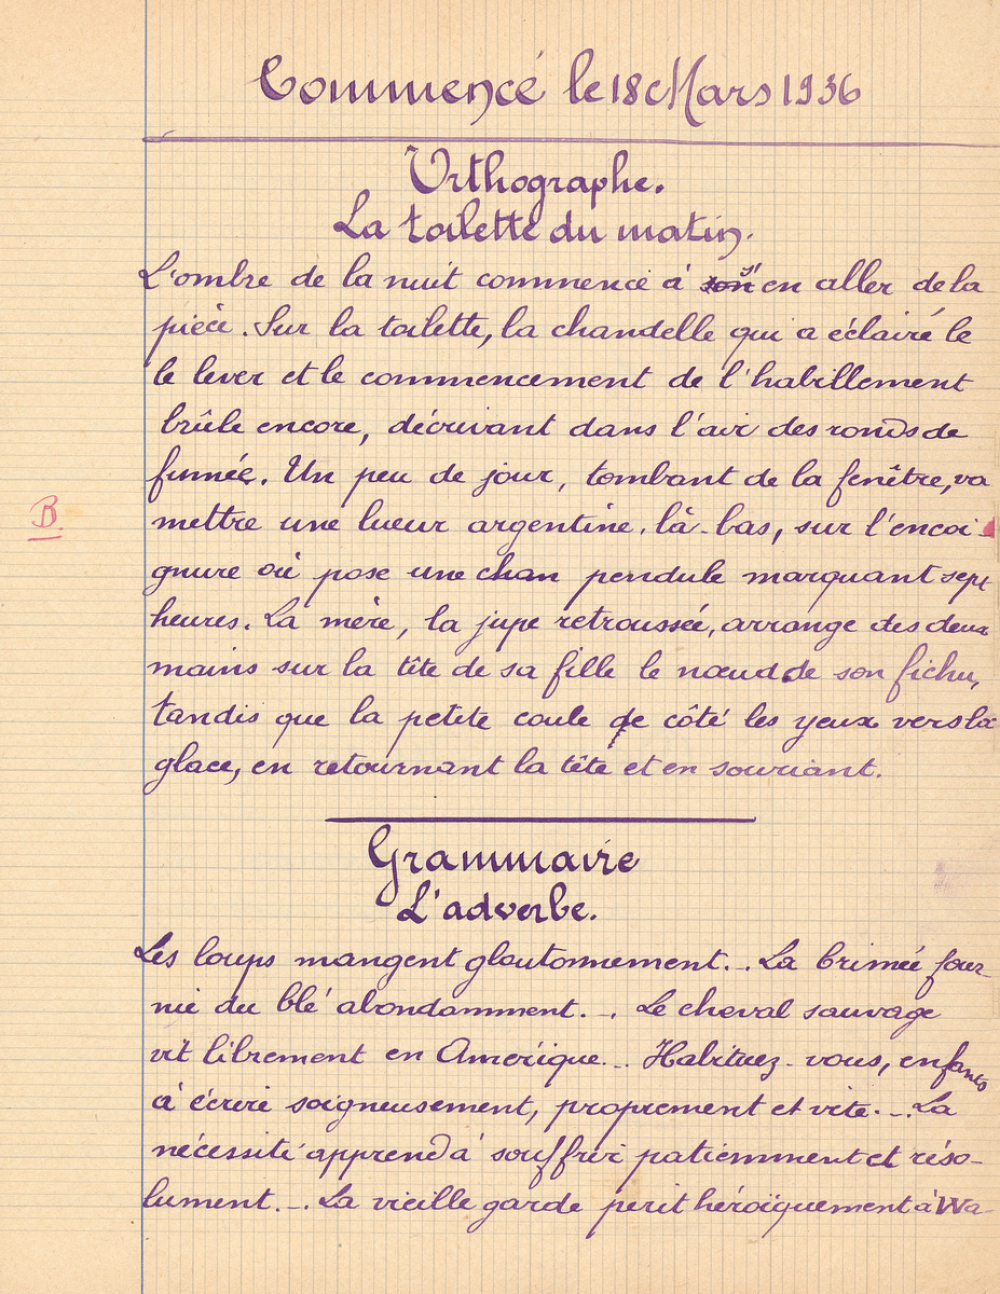 Commencé le 18 Mars 1936
Orthographe.
La toilette du matin.
L'ombre de la nuit commence à s'en aller de la
pièce. Sur la toilette, la chandelle qui a éclairé le
le lever et le commencement de l'habillement
brûle encore, décrivant dans l'air des ronds de
fumée. Un peu de jour, tombant de la fenêtre, va
mettre une lueur argentine, là-bas, sur l'encoi-
B.
gnure où pose une chan pendule marquant sept
heures. La mère, la jupe retroussée, arrange des deux
mains sur la tête de sa fille le nœud de son fichu,
tandis que la petite coule de côté les yeux vers la
glace, en retournant la tête et en souriant.
Grammaire
L'adverbe.
Les loups mangent gloutonnement. _ La brimée four-
nie du blé abondamment. _ Le cheval sauvage
vit librement en Amérique. _ Habituez-vous, enfants
à écrire soigneusement, proprement et vite. _ La
nécessité apprend à souffrir patiemment et réso-
lument. _ La vieille garde périt héroïquement à Wa-